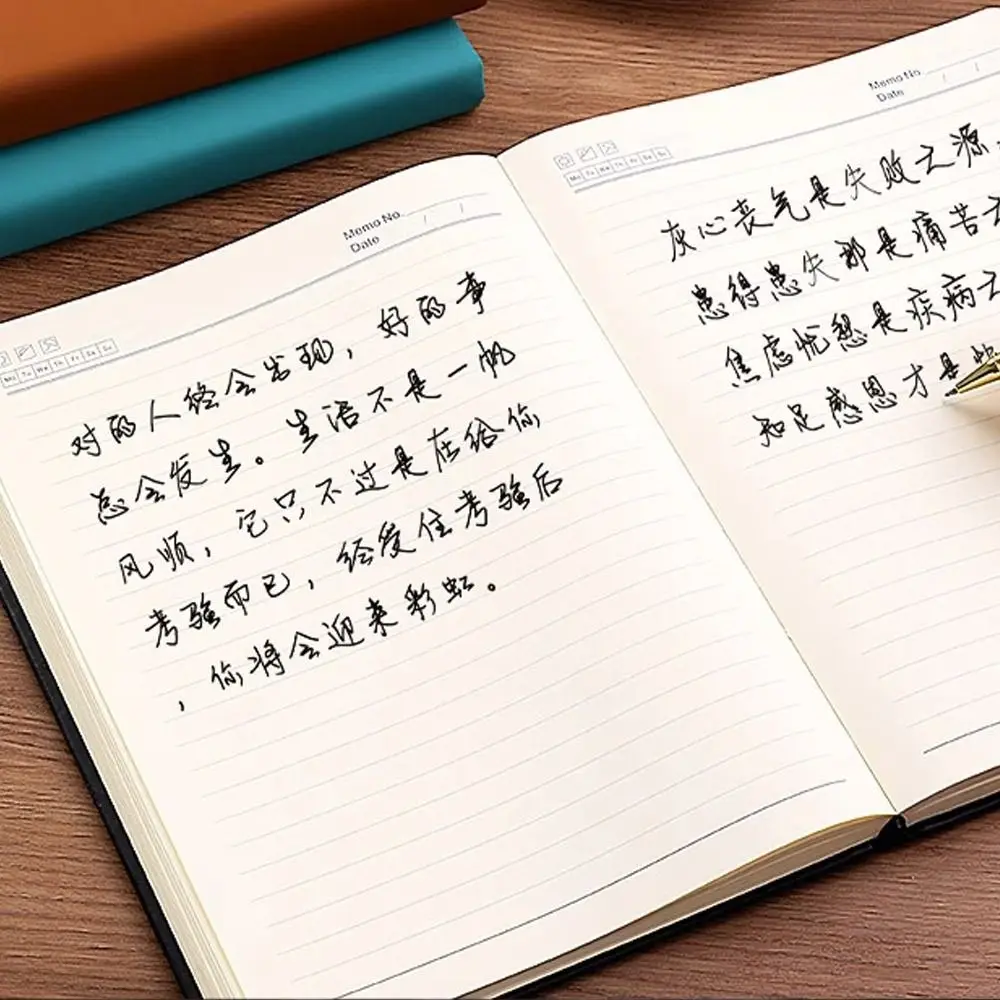 Memo No.
Date
Mo Tu We Th Fr Sa Su
对的人终会出现，好的事
总会发生。生活不是一帆
风顺，它只不过是在给你
考验而已，经受住考验后
，你将会迎来彩虹。
Memo No.
Date
Mo Tu We Th Fr Sa Su
灰心丧气是失败之源
患得患失都是痛苦之
焦虑忧愁是疾病之
知足感恩才是